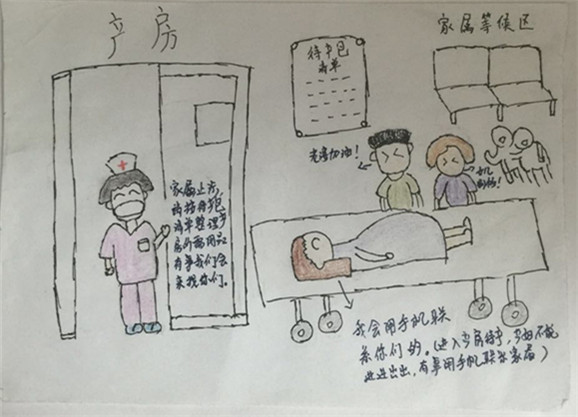 产房
家属等候区
待产包
清单
老婆加油！
家属止步，
请按待产包
清单整理产
房所需用品
有事我们会
来找你们。
我会用手机联
系你们的。（进入产房待产，产妇不能
进进出出，有事用手机联系家属）